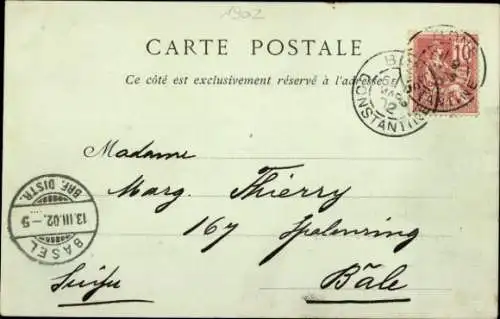 1902
CARTE POSTALE
Ce côté est exclusivement réservé à l'adresse
10
CONSTANTINE
Madame
Marg. Thierry
167 Spalenring
Bâle
Suisse
BASEL
13.III.02.–5
BRF. DISTR.